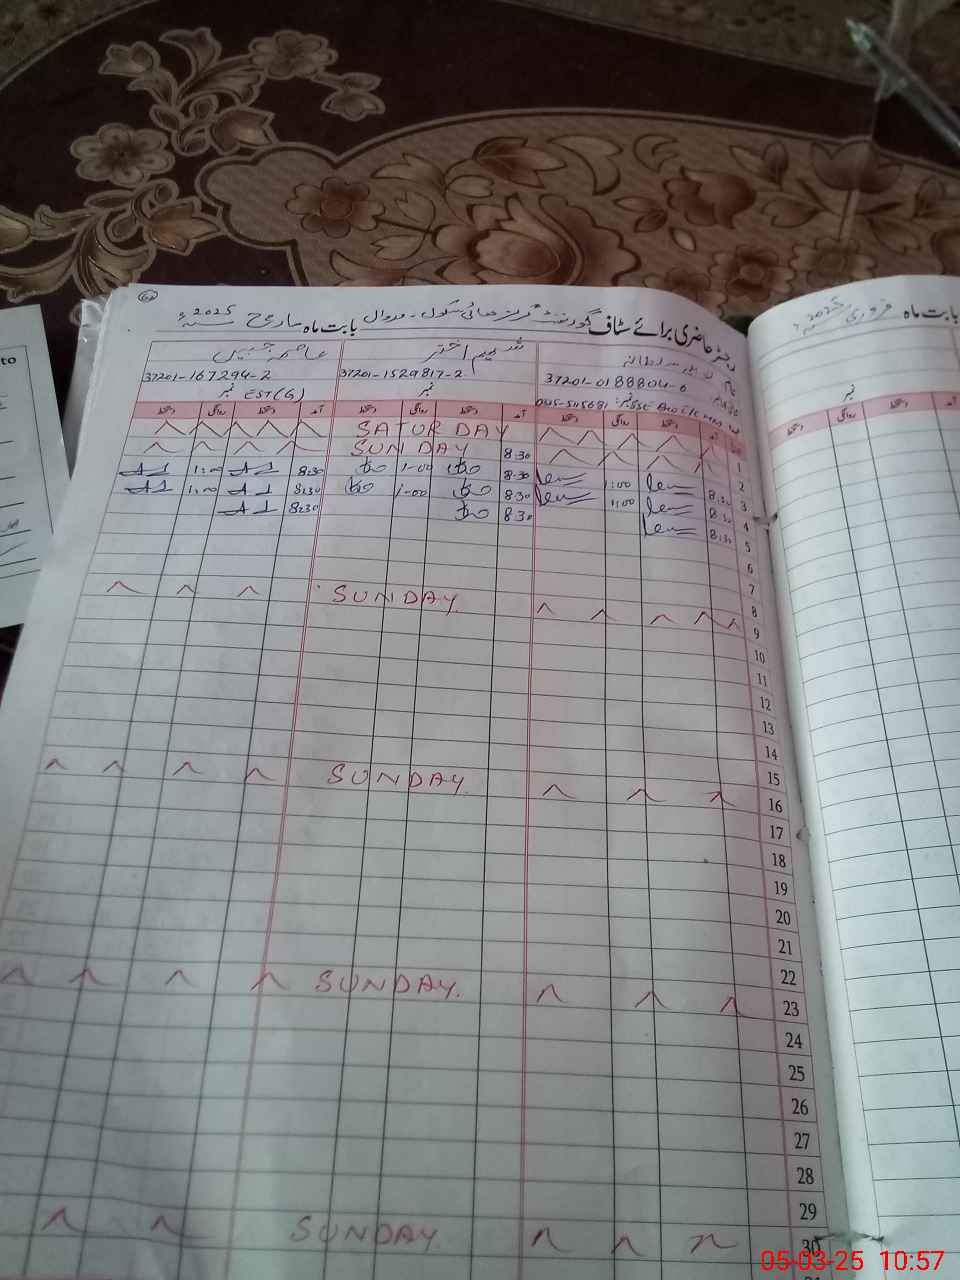 رجسٹر حاضری برائے سٹاف گورنمنٹ گرلز ہائی سکول۔ بابت ماہ مارچ 2025
شمیم اختر
37201-0188804-6
37201-1529817-2
37201-167294-2
نمبر
نمبر EST(G)
آمد دستخط روانگی دستخط آمد دستخط روانگی دستخط آمد دستخط روانگی دستخط
1 SATURDAY
2 SUNDAY
3 8:30 1:00 8:30 1-00 8:30 1:00
4 8:30 1:00 8:30 1-00 8:30 1:00
5 8:30 8:30 8:30
6
7
8
9 SUNDAY
10
11
12
13
14
15
16 SUNDAY
17
18
19
20
21
22
23 SUNDAY
24
25
26
27
28
29
30 SUNDAY
بابت ماہ فروری 2025
نمبر
آمد دستخط روانگی دستخط
to
05-03-25 10:57